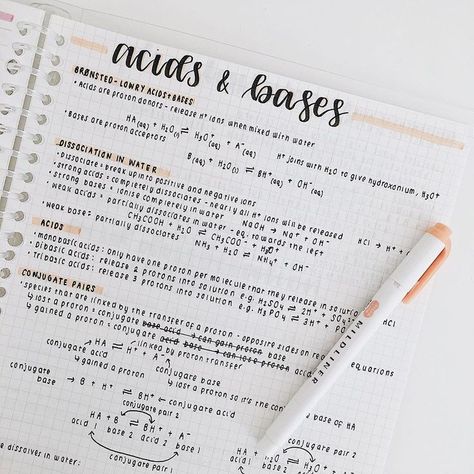 acids & bases
BRØNSTED-LOWRY ACIDS + BASES
• Acids are proton donors - release H⁺ ions when mixed with water
HA (aq) + H₂O (l) ⇌ H₃O⁺ + A⁻ (aq) H⁺ joins with H₂O to give hydroxonium, H₃O⁺
• Bases are proton acceptors
B (aq) + H₂O (l) ⇌ BH⁺ + OH⁻ (aq)
DISSOCIATION IN WATER
• Dissociate = break up into positive and negative ions
• strong acids = completely dissociates - nearly all H⁺ ions will be released
• strong bases = ionise completely in water NaOH → Na⁺ + OH⁻ HCl → H⁺ +
• weak acids = partially dissociates in water - eq. towards the left
CH₃COOH + H₂O ⇌ CH₃COO⁻ + H₃O⁺
• weak base = partially dissociates NH₃ + H₂O ⇌ NH₄⁺ + OH⁻
ACIDS
• mono basic acids: only have one proton per molecule that they release in solution HCl
• Di basic acids: release 2 protons into solution e.g. H₂SO₄ ⇌ 2H⁺ +
• Tri basic acids: release 3 protons into solution e.g. H₃PO₄ ⇌ 3H⁺ +
CONJUGATE PAIRS
• species that are linked by the transfer of a proton - opposite sides on equations
↳ lost a proton = conjugate base acid → can gain proton base
↳ gained a proton = conjugate acid base → can lose proton acid
conjugate acid HA ⇌ H⁺ + A⁻ conjugate base
linked by proton transfer
↳ gained a proton ↳ lost a proton so it's the con base of HA
conjugate base → B + H⁺ ⇌ BH⁺ ← conjugate acid
conjugate pair 2 conjugate pair 2
HA + B ⇌ BH⁺ + A⁻ HA + H₂O ⇌ H₃O⁺
acid 1 base 2 acid 2 base 1 acid 1 base 2
conjugate pair 1
dissolves in water:
MILDLINER